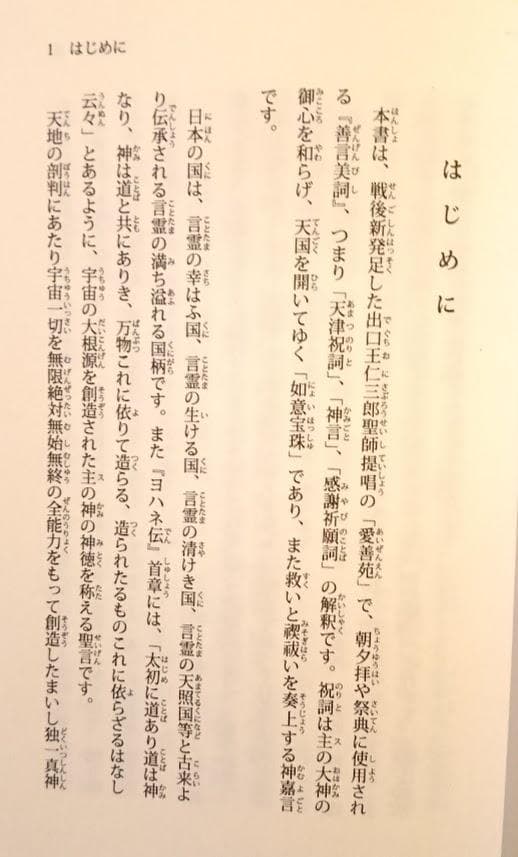 1 はじめに
はじめに
本書は、戦後新発足した出口王仁三郎聖師提唱の「愛善苑」で、朝夕拝や祭典に使用され
る『善言美詞』、つまり「天津祝詞」、「神言」、「感謝祈願詞」の解釈です。祝詞は主の大神の
御心を和らげ、天国を開いてゆく「如意宝珠」であり、また救いと禊祓いを奏上する神嘉言
です。
日本の国は、言霊の幸はふ国、言霊の生ける国、言霊の清けき国、言霊の天照国等と古来よ
り伝承される言霊の満ち溢れる国柄です。また『ヨハネ伝』首章には、「太初に道あり道は神
なり、神は道と共にありき、万物これに依りて造らる、造られたるものこれに依らざるはなし
云々」とあるように、宇宙の大根源を創造された主の神の神徳を称える聖言です。
天地の剖判にあたり宇宙一切を無限絶対無始無終の全能力をもって創造したまいし独一真神